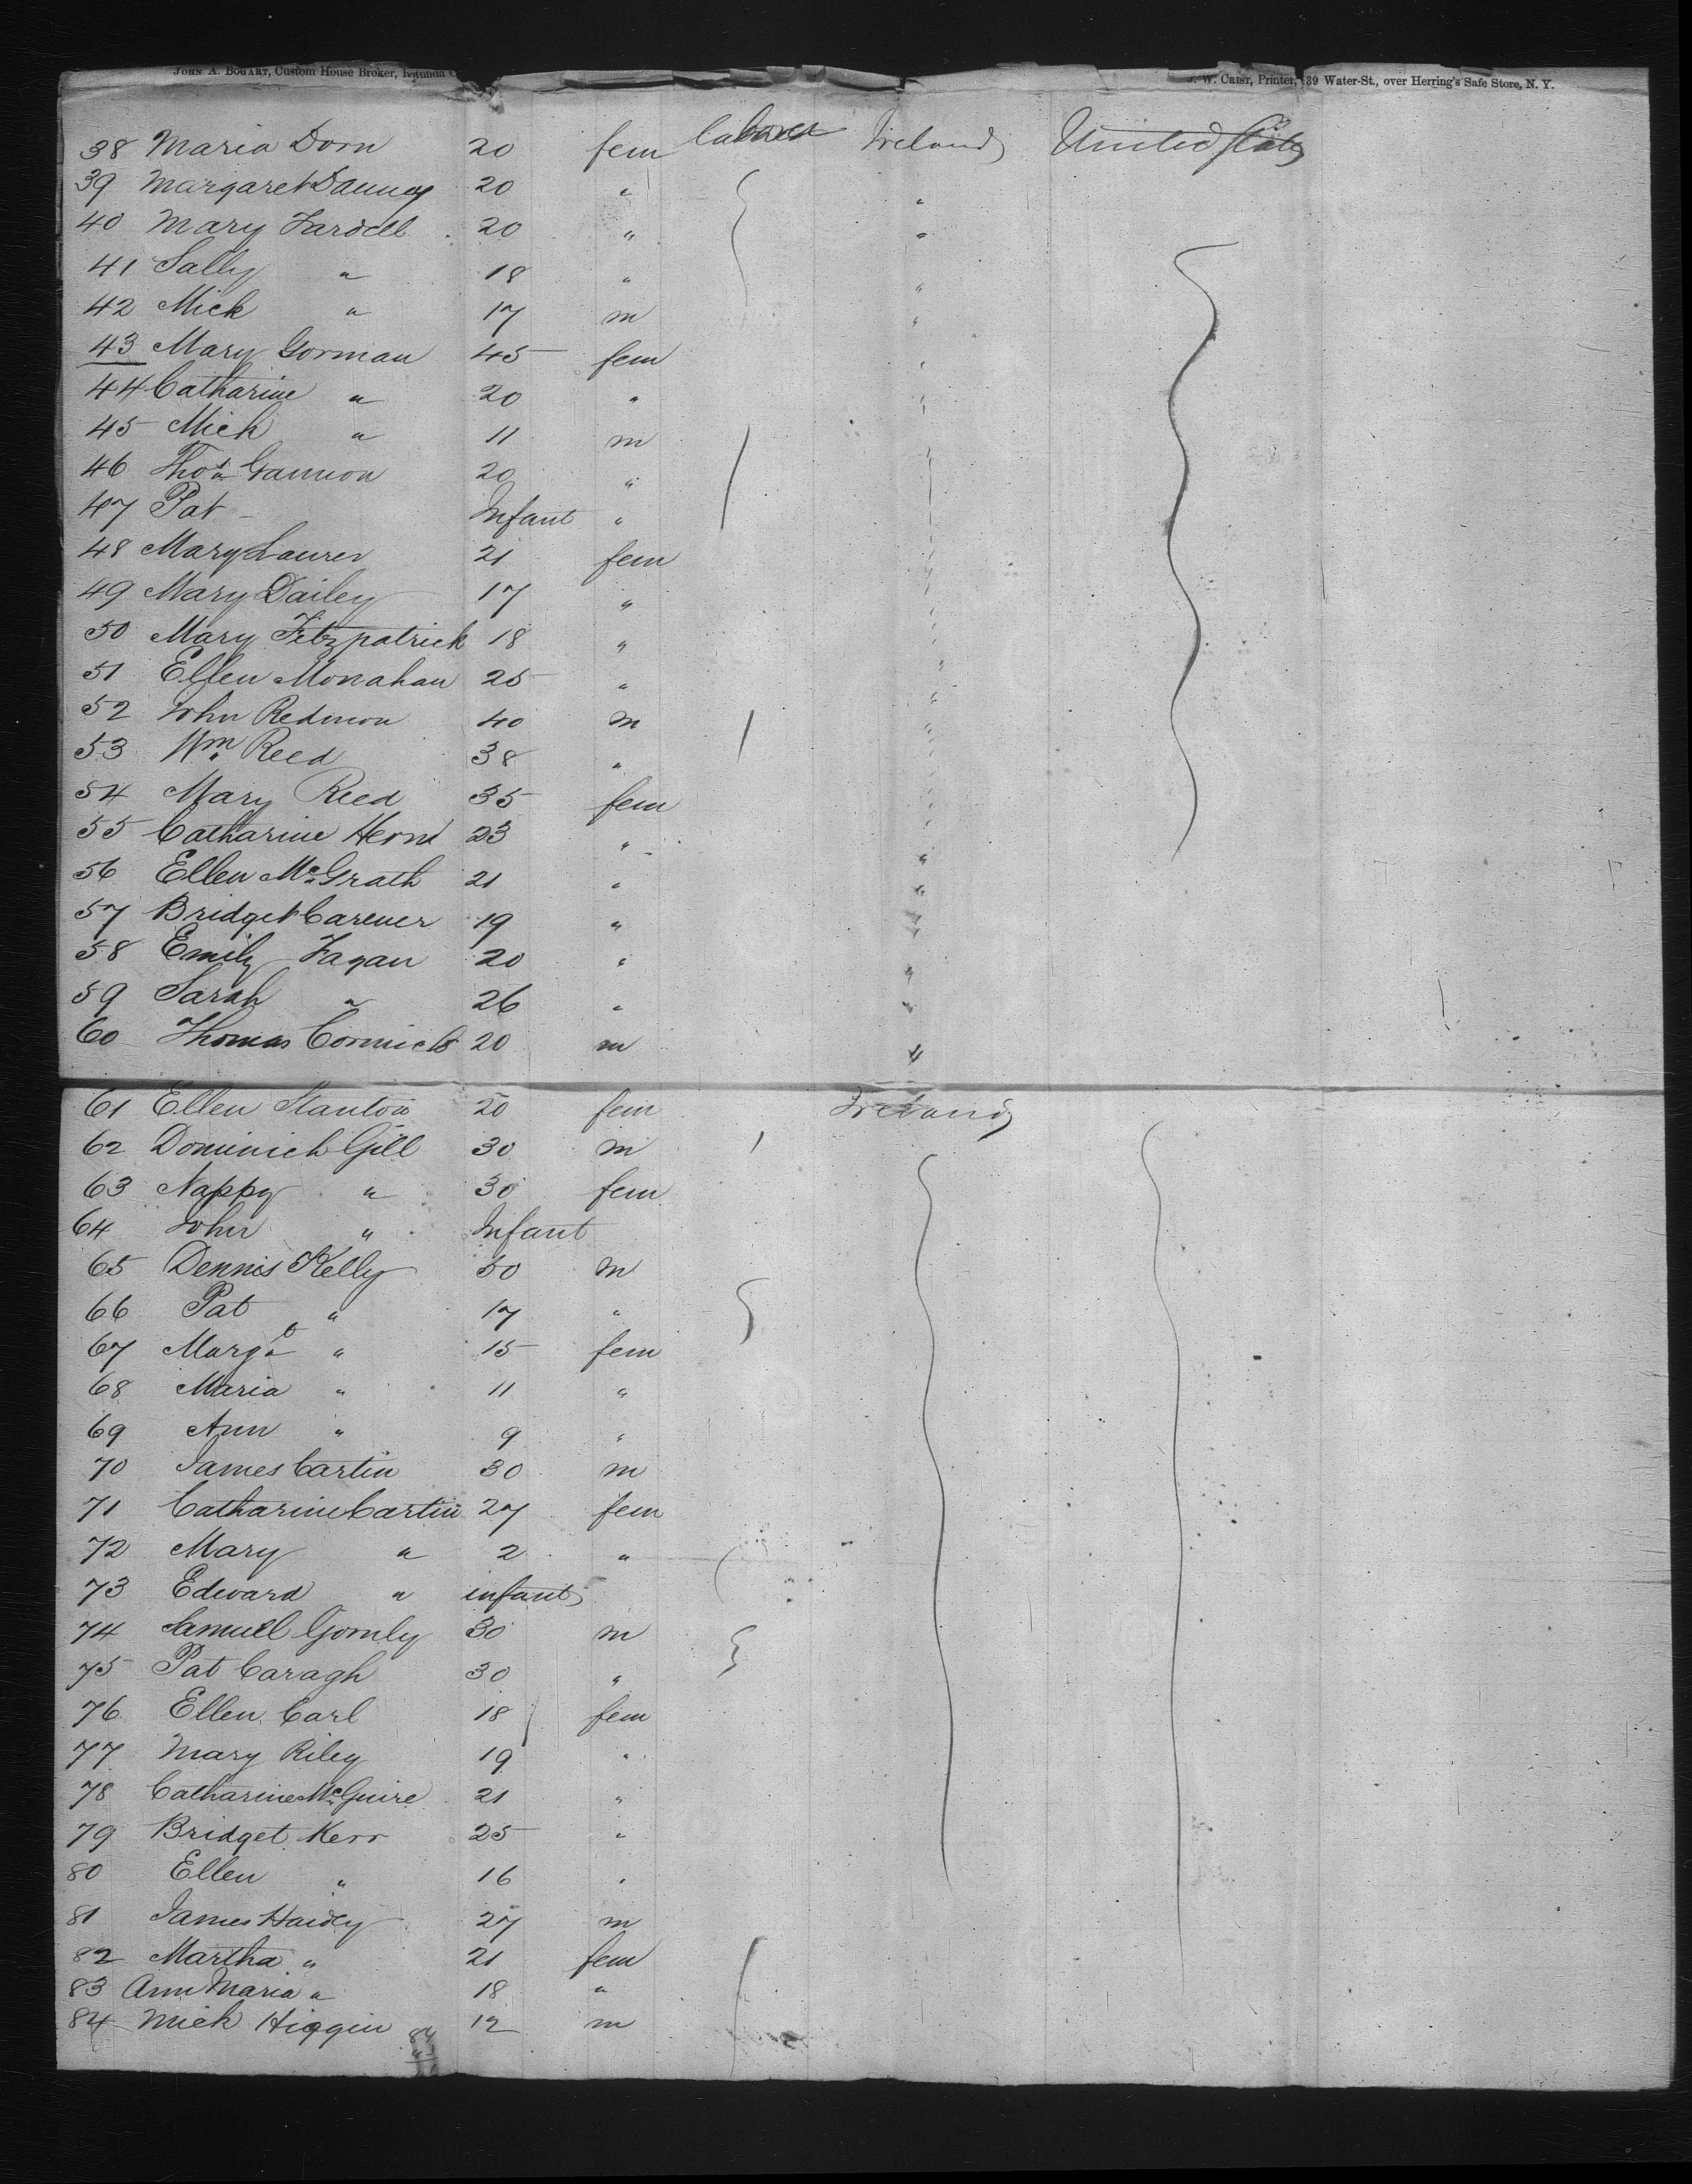 JOHN A. BOGART, Custom House Broker, Rotunda
J. W. CRIST, Printer, 139 Water-St., over Herring's Safe Store, N. Y.
38 Maria Dorn 20 fem laborer Ireland United States
39 Margaret Danney 20 "  "
40 Mary Fardell 20 " "
41 Sally " 18 " "
42 Mick " 17 m "
43 Mary Gorman 45 fem "
44 Catharine " 20 " "
45 Mick " 11 m "
46 Thos Gannon 20 " "
47 Pat - Infant " "
48 Mary Laurer 21 fem "
49 Mary Dailey 17 " "
50 Mary Fitzpatrick 18 " "
51 Ellen Monahan 25 " "
52 John Redmon 40 m "
53 Wm Reed 38 " "
54 Mary Reed 35 fem "
55 Catharine Hernd 23 " "
56 Ellen McGrath 21 " "
57 Bridget Carener 19 " "
58 Emily Fagan 20 " "
59 Sarah " 26 " "
60 Thomas Cormick 20 m "
61 Ellen Stanton 20 fem Ireland
62 Dominick Gill 30 m
63 Nappy " 30 fem
64 John " Infant
65 Dennis Kelly 50 m
66 Pat " 17 "
67 Margt " 15 fem
68 Maria " 11 "
69 Ann " 9 "
70 James Cartin 30 m
71 Catharine Cartin 27 fem
72 Mary " 2 "
73 Edward " infant
74 Samuel Gomly 30 m
75 Pat Caragh 30 "
76 Ellen Carl 18 fem
77 Mary Riley 19 "
78 Catharine McGuire 21 "
79 Bridget Kerr 25 "
80 Ellen " 16 "
81 James Haidey 27 m
82 Martha " 21 fem
83 Ann Maria " 18 "
84 Mick Higgin 12 m
84